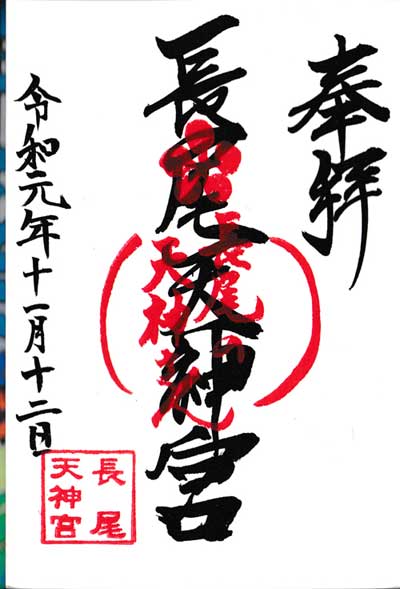 奉拝
長尾天神宮
長尾の
天神さん
令和元年十一月十二日
長尾
天神宮